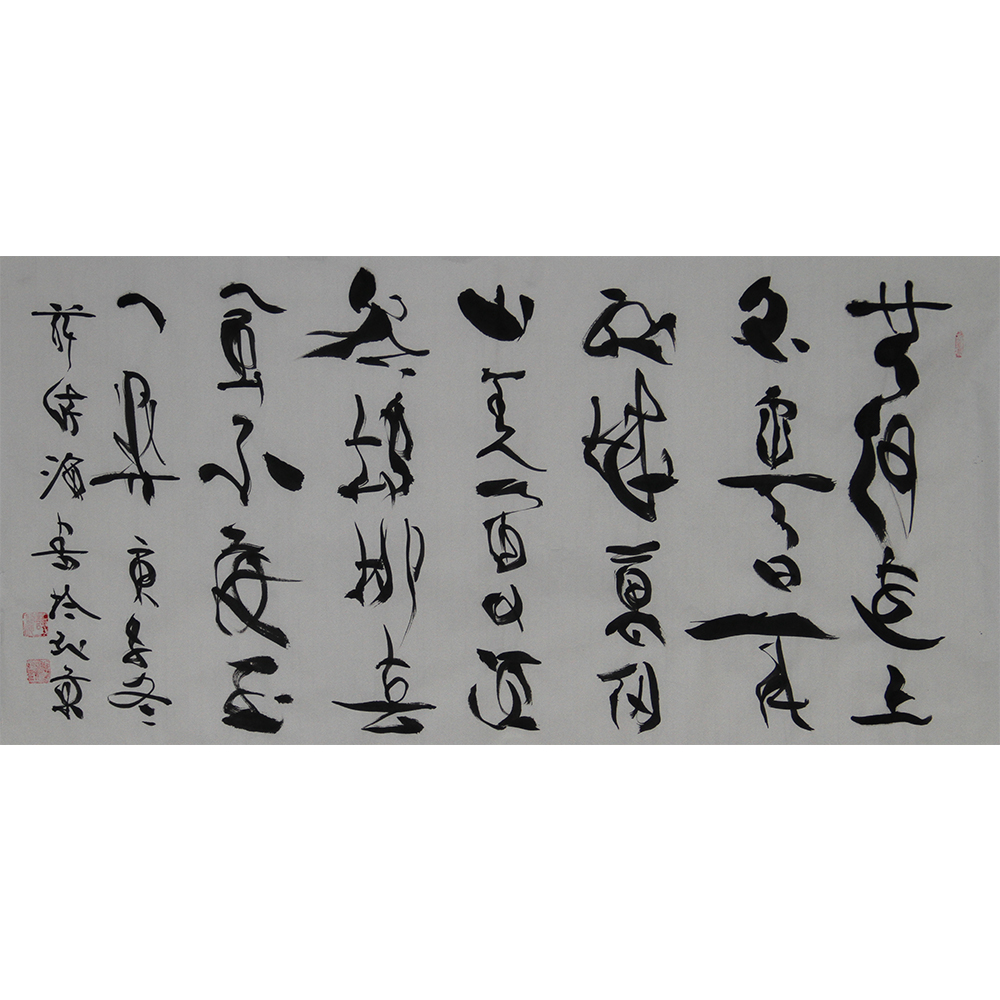 黄河远上
白云间一片
孤城万仞
山羌笛何须
怨杨柳春
风不度玉
门关 庚子冬
海书于北京